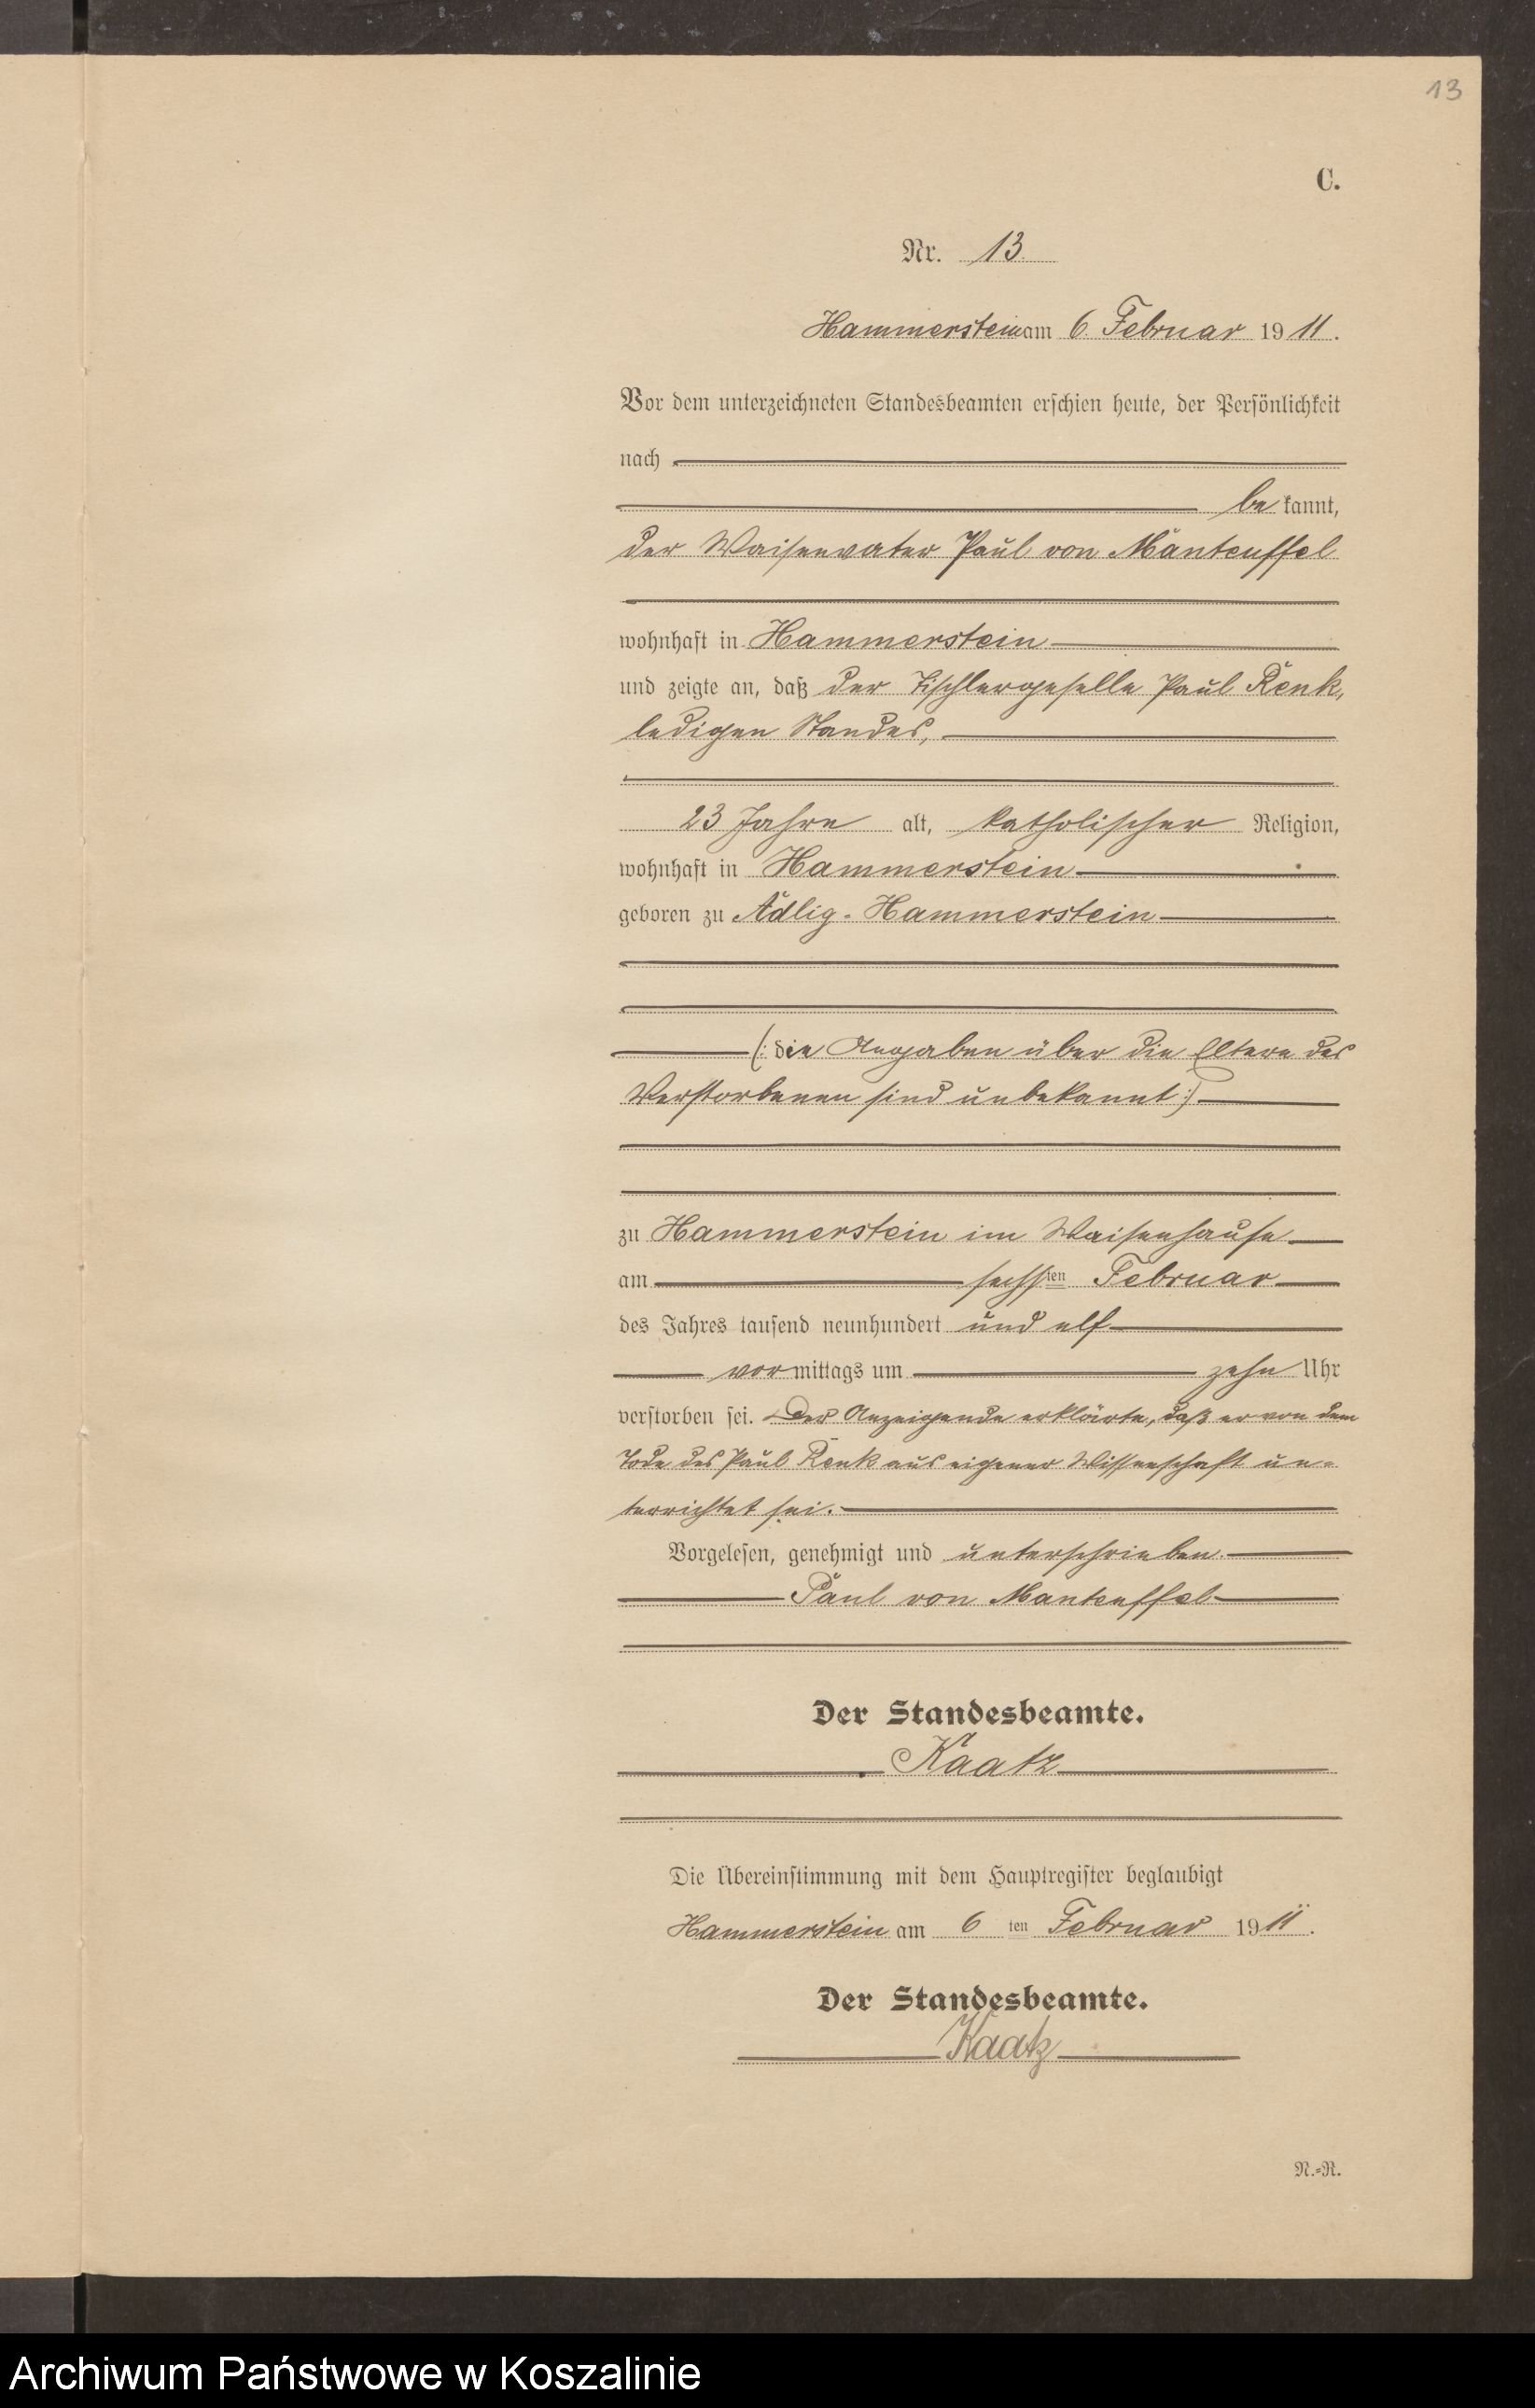 13
C.
Nr. 13.
Hammerstein am 6. Februar 1911.
Vor dem unterzeichneten Standesbeamten erschien heute, der Persönlichkeit
nach
be kannt,
der Waisenvater Paul von Manteuffel
wohnhaft in Hammerstein
und zeigte an, daß der Tischlergeselle Paul Renk,
ledigen Standes,
23 Jahre alt, katholischer Religion,
wohnhaft in Hammerstein
geboren zu Adlig-Hammerstein
(: die Angaben über die Eltern des
Verstorbenen sind unbekannt :)
zu Hammerstein im Waisenhause
am sechsten Februar
des Jahres tausend neunhundert und elf
vormittags um zehn Uhr
verstorben sei. Der Anzeigende erklärte, daß er von dem
Tode des Paul Renk aus eigener Wissenschaft un-
terrichtet sei.
Vorgelesen, genehmigt und unterschrieben.
Paul von Manteuffel
Der Standesbeamte.
Kaatz
Die Übereinstimmung mit dem Hauptregister beglaubigt
Hammerstein am 6ten Februar 1911.
Der Standesbeamte.
Kaatz
N.-R.
Archiwum Państwowe w Koszalinie